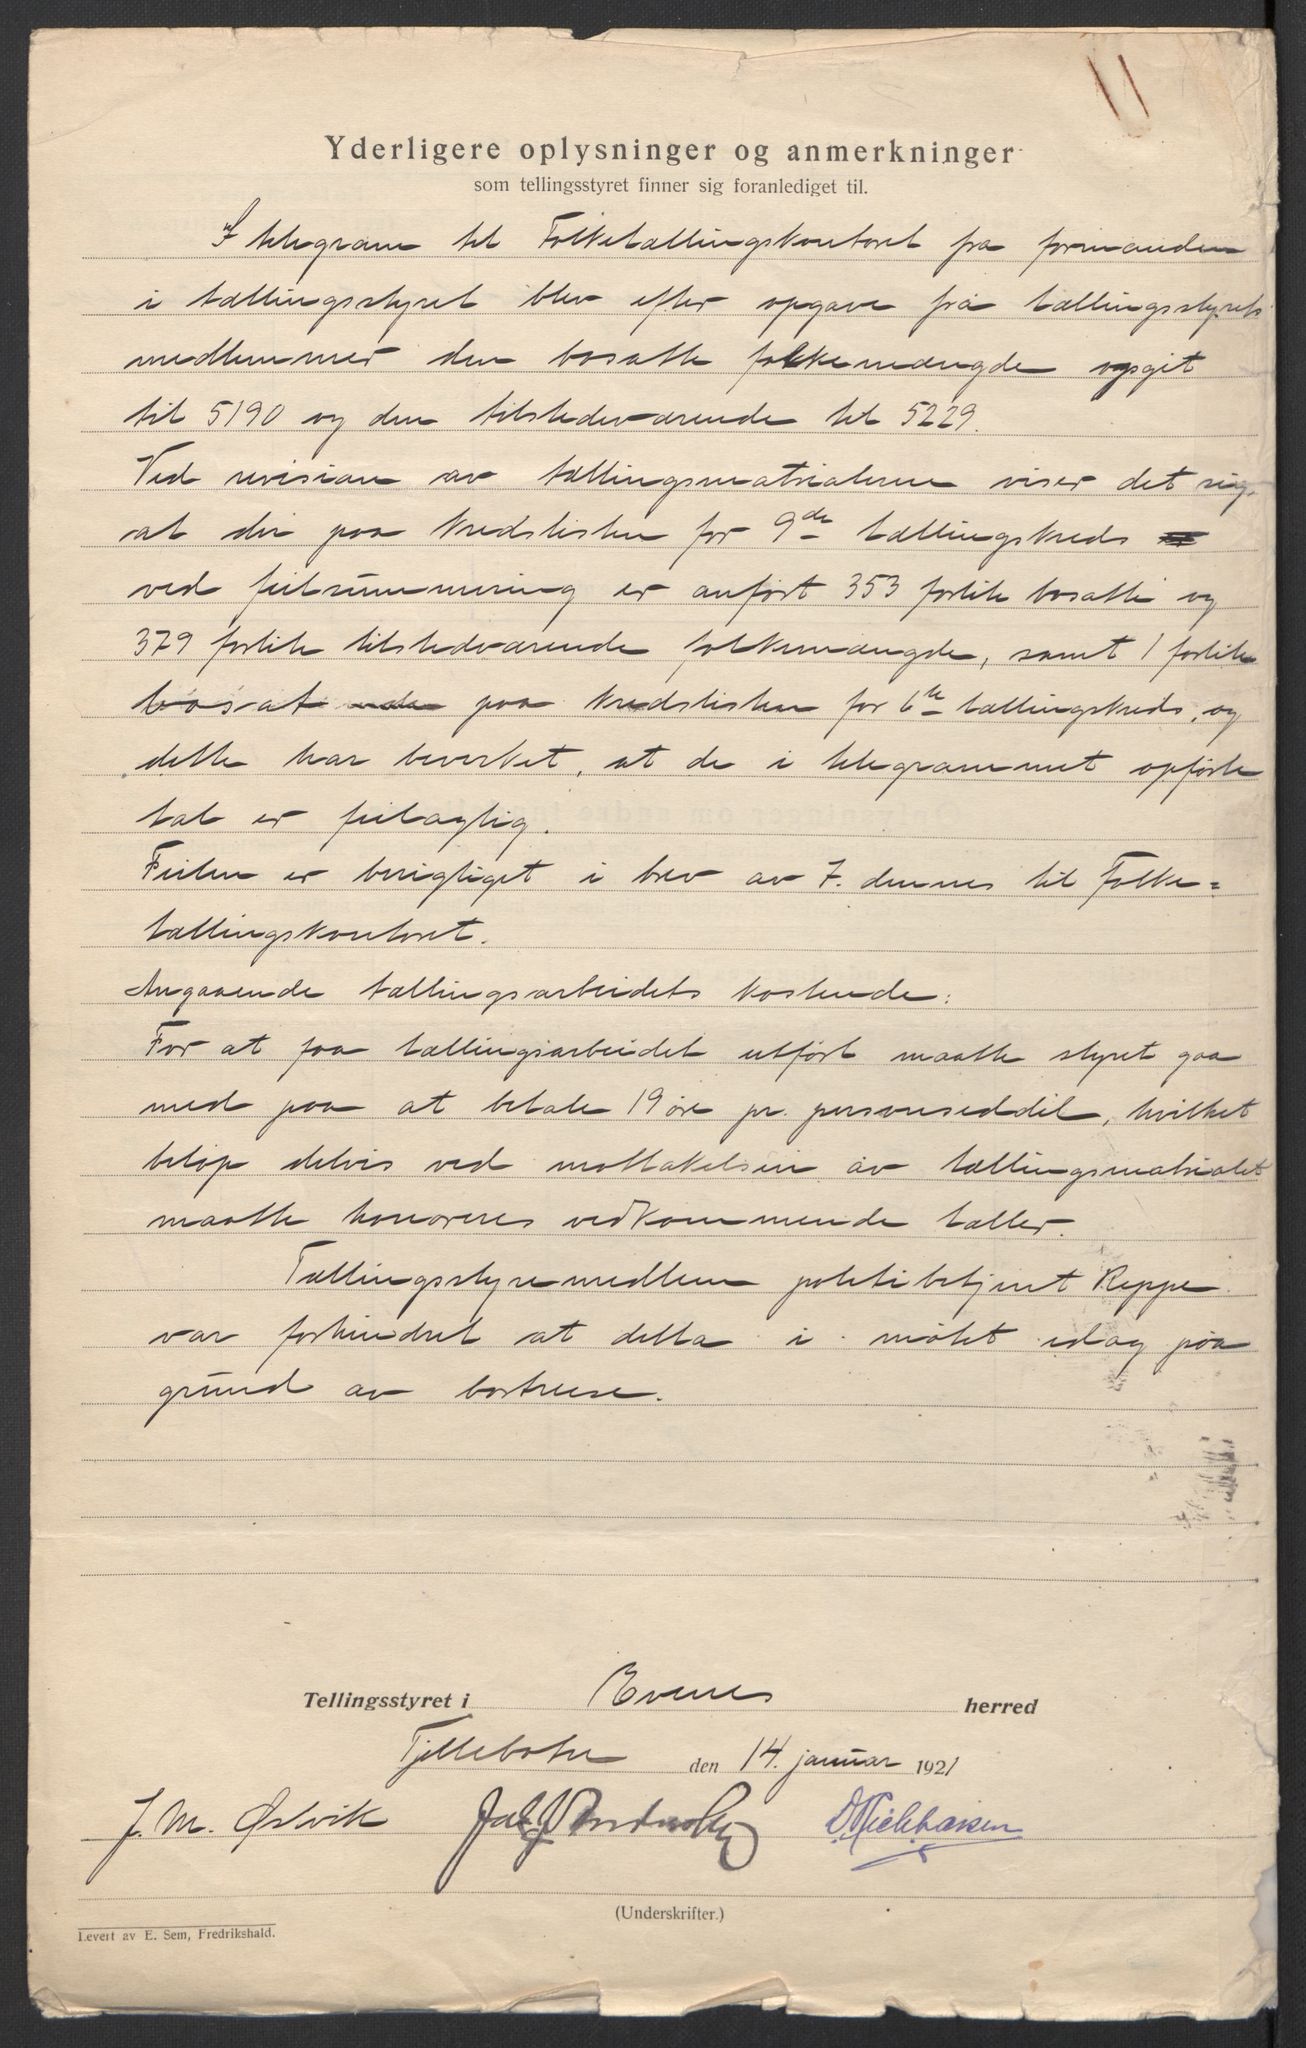 Yderligere oplysninger og anmerkninger
som tellingsstyret finner sig foranlediget til.
I telegram til Folketællingskontoret fra formanden
i tællingsstyret blev efter opgave fra tællingsstyrets
medlemmer den bosatte folkemængde opgit
til 5190 og den tilstedeværende til 5229.
Ved revision av tællingsmatrialerne viser det sig
at der paa kredslisten for 9de tællingskreds
ved feilsummering er anført 353 forlite bosatte og
379 forlite tilstedværende folkemængde, samt 1 forlite
bosat paa kredslisten for 6te tællingskreds, og
dette har bevirket, at de i telegrammet opførte
tal er feilagtig.
Feilen er berigtiget i brev av 7. dennes til Folke=
tællingskontoret.
Angaaende tællingsarbeidets kostende:
For at faa tællingsarbeidet utført maatte styret gaa
med paa at betale 19 øre pr. personseddel, hvilket
beløp delvis ved mottakelsen av tællingsmatrialet
maatte honoreres vedkommende tæller.
Tællingsstyremedlem politibetjent Reppe
var forhindret at delta i møtet idag paa
grund av bortreise.
Tellingsstyret i Evenes herred
Tjellebotn den 14. januar 1921
J. M. Østvik
(Underskrifter.)
Levert av E. Sem, Fredrikshald.